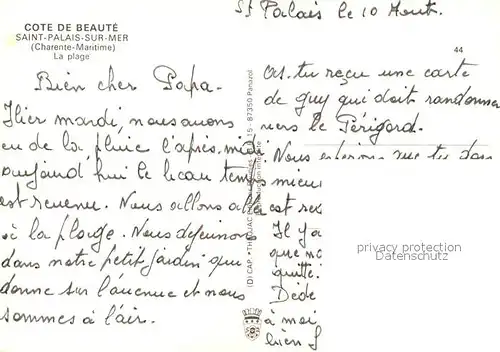 COTE DE BEAUTÉ
SAINT-PALAIS-SUR-MER
(Charente-Maritime)
La plage
44
St Palais le 10 Août.
Bien cher Papa.
Hier mardi, nous avons
eu de la pluie l'après-midi
aujourd'hui le beau temps
est revenu. Nous allons aller
à la plage. Nous déjeunons
dans notre petit jardin qui
donne sur l'avenue et nous
sommes à l'air.
as-tu reçu une carte
de Guy qui doit randonner
vers le Périgord.
Nous que tu
mieux
est
Il y a
que
quitté
Dédé
à moi
bien
15 - 87350 Panazol
privacy protection
Datenschutz